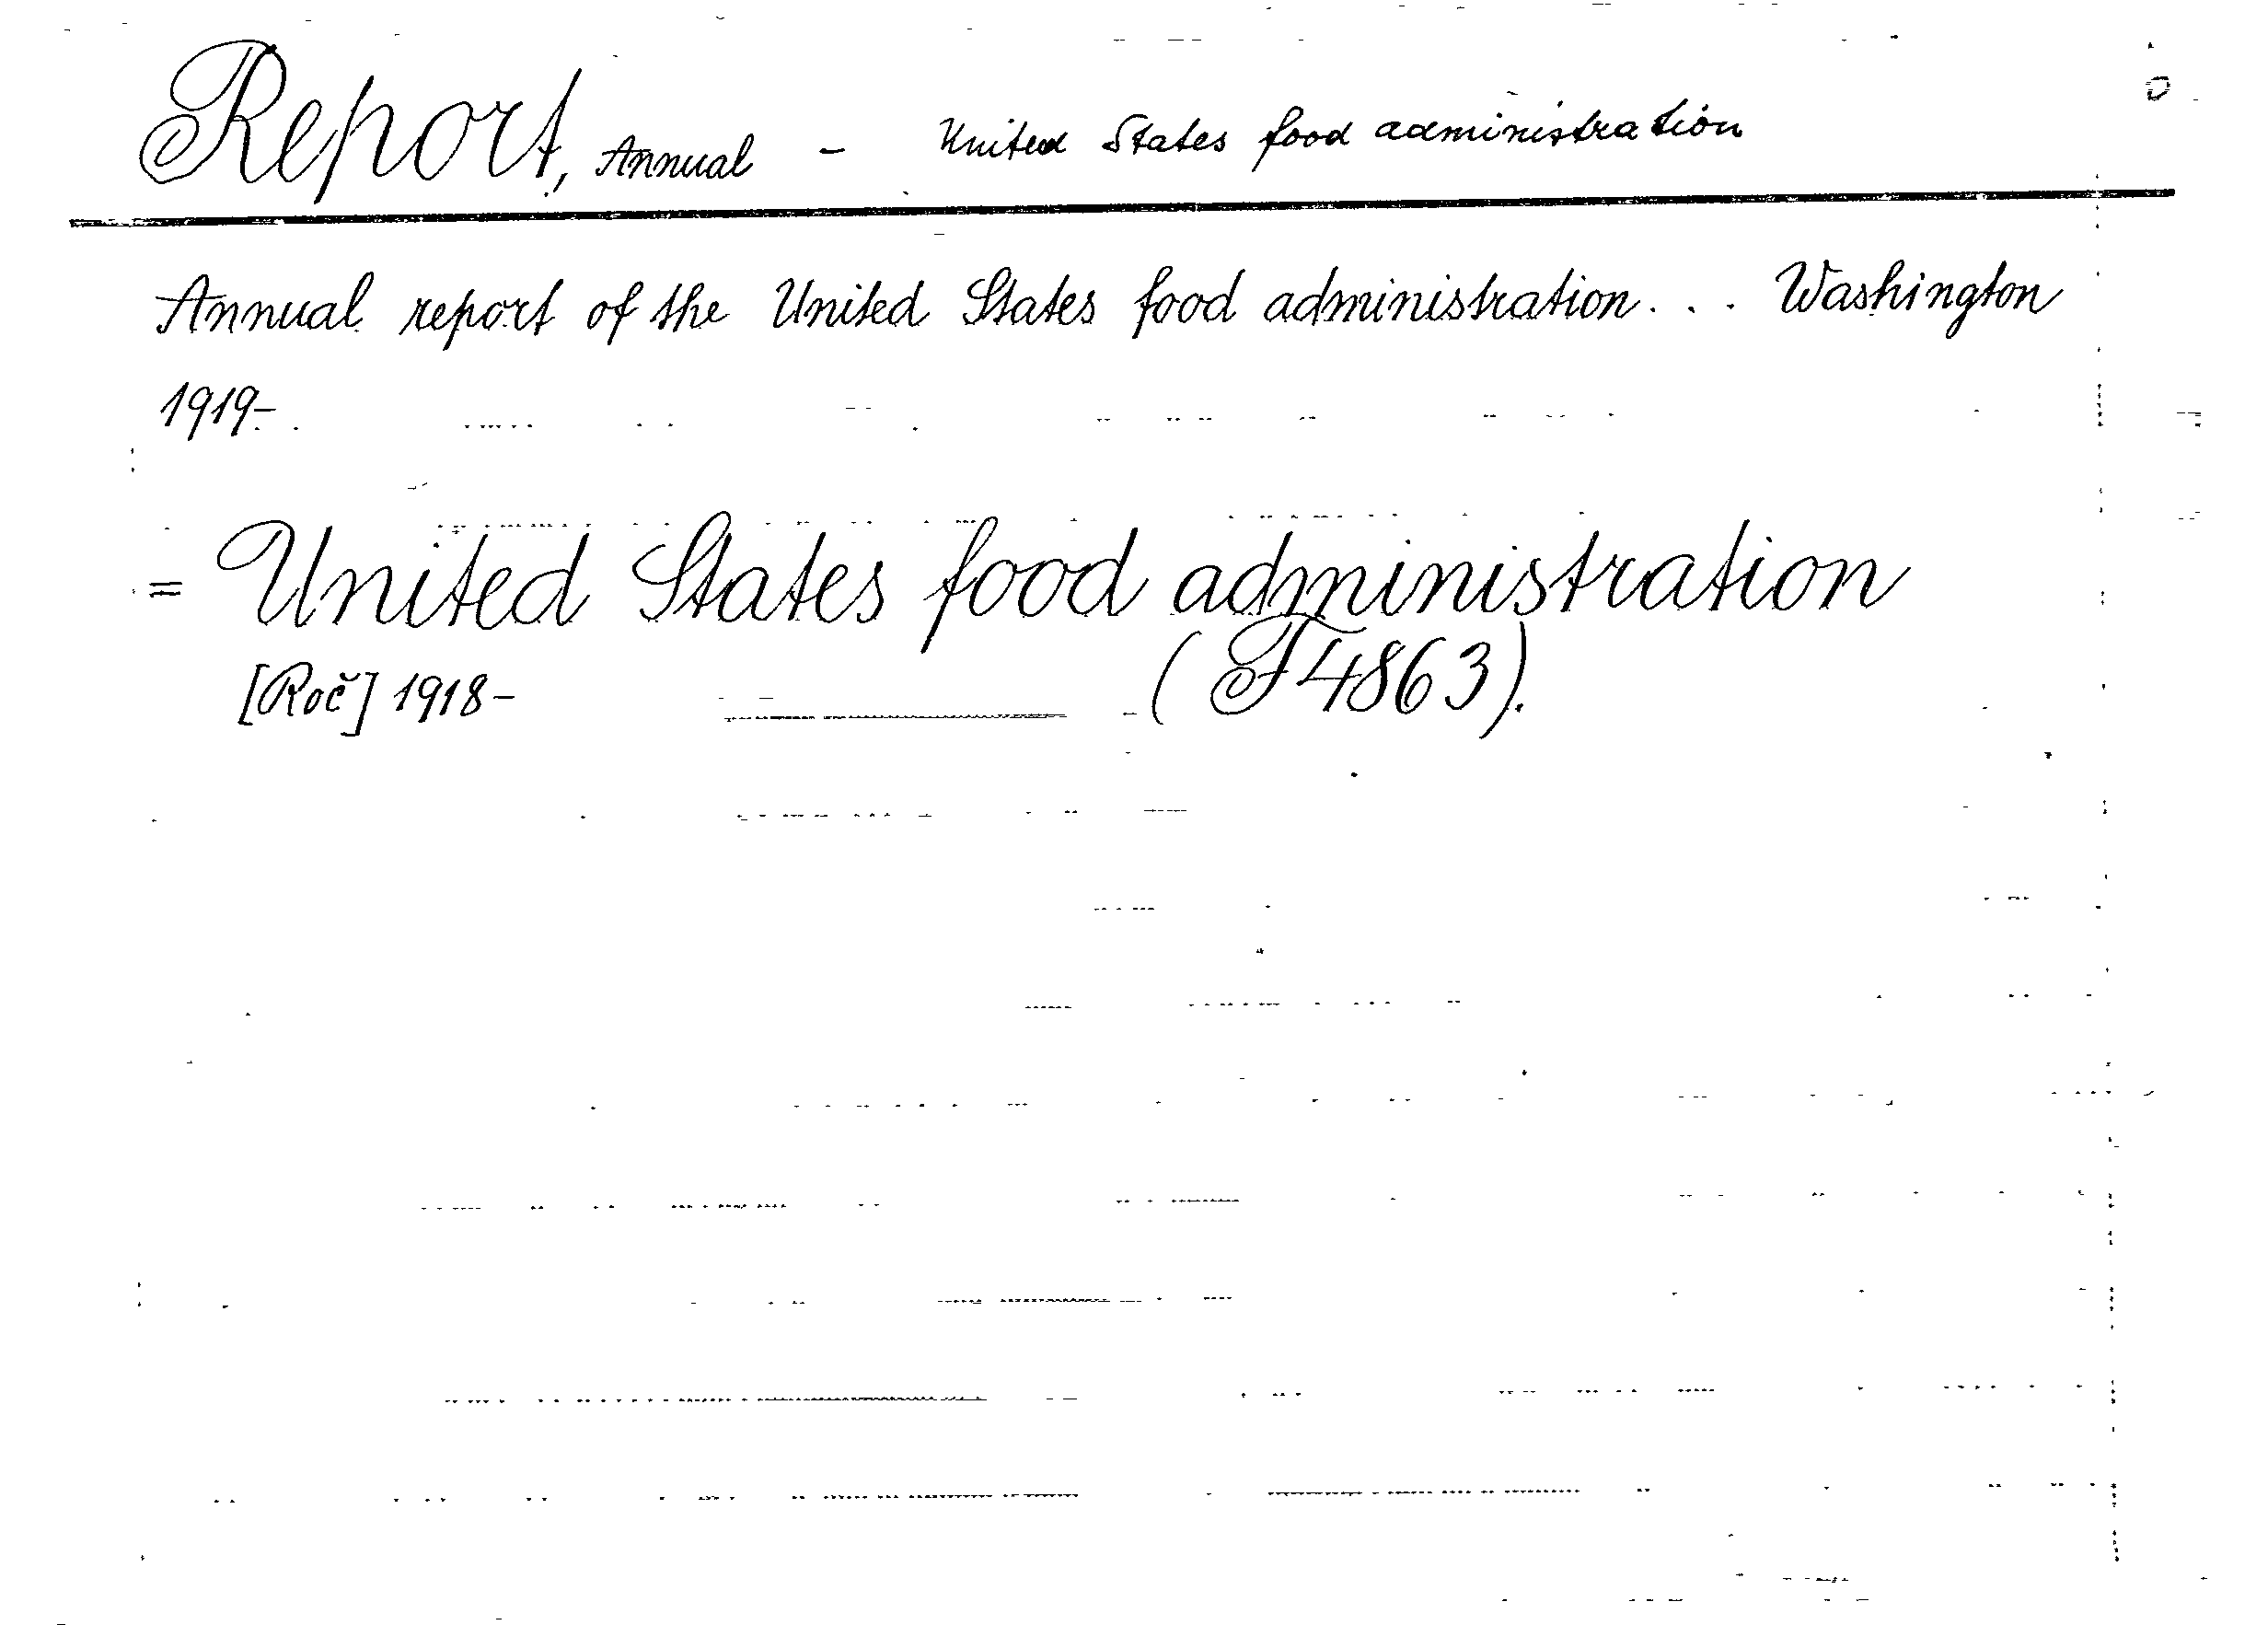 Report, Annual - United States food administration
Annual report of the United States food administration... Washington
1919-
= United States food administration
[Roč] 1918- (F4863).